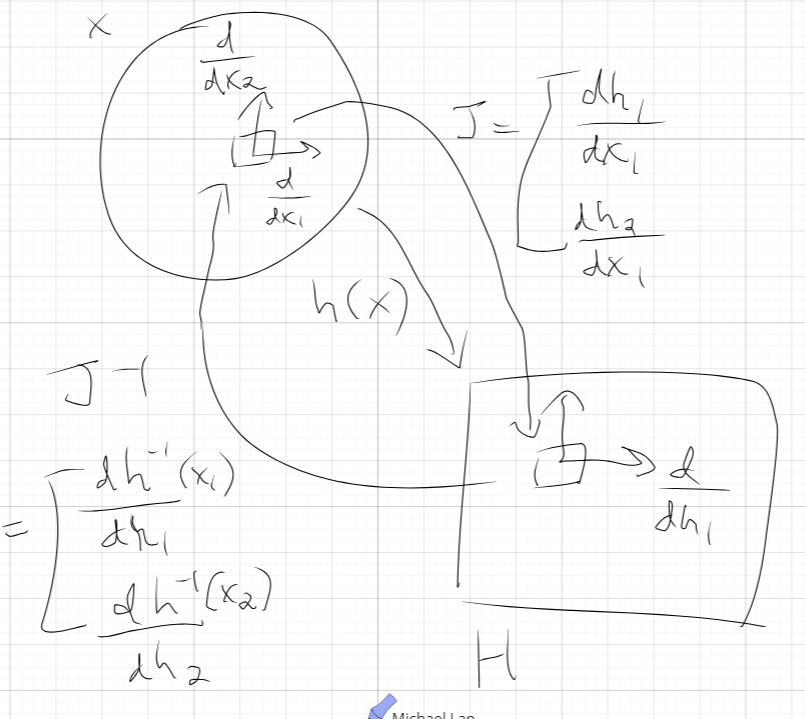 X
d
dx2
d
dx1
J = [
dh1
dx1
dh2
dx1
h(x)
J-1
= [
dh-1(x1)
dh1
dh-1(x2)
dh2
d
dh1
H
Michael Lan